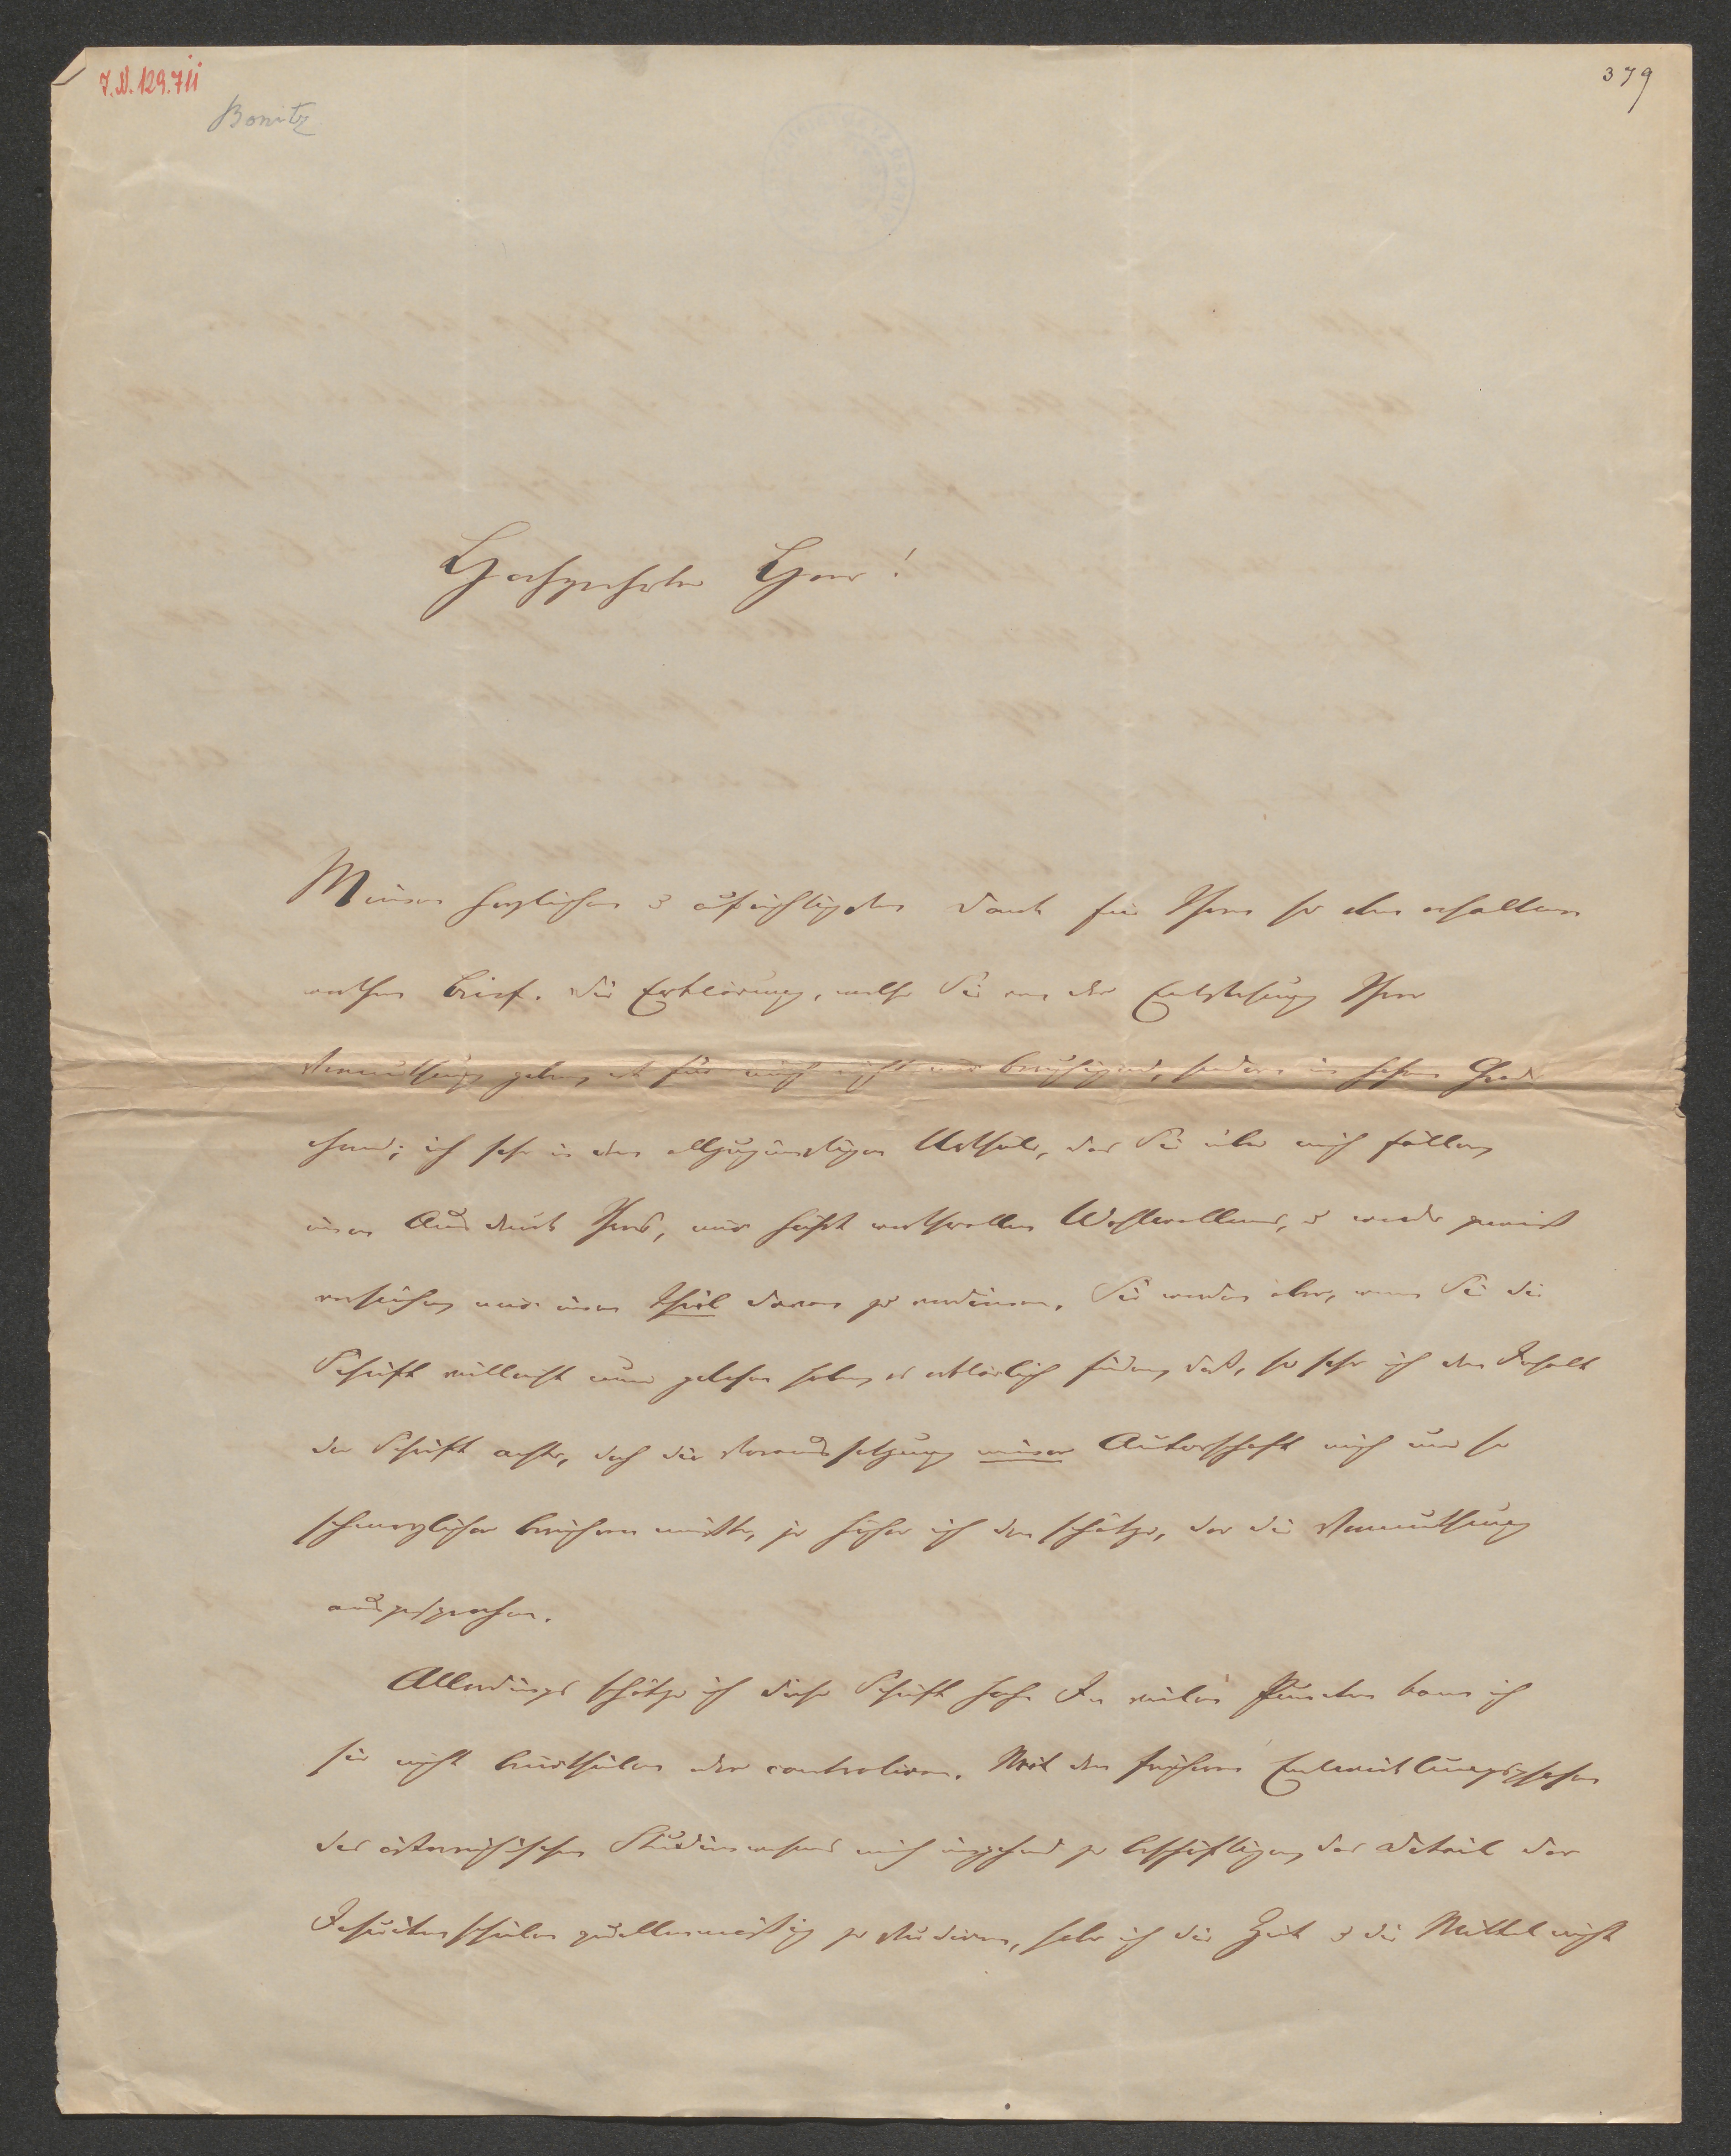 J.N. 129.711
379
Bonitz
Hochgeehrter Herr!
Meinen herzlichen u aufrichtigsten Dank für Ihren so eben erhaltenen
werthen Brief. Die Erklärung, welche Sie von der Entstehung Ihrer
Vermuthung geben, ist für mich nicht nur beruhigend, sondern in hohem Grade
ehrend; ich sehe in dem allzugünstigen Urtheile, das Sie über mich fällen,
einen Ausdruck Ihres, mir höchst werthvollen Wohlwollens, u werde gewiß
versuchen, mir einen Theil davon zu verdienen. Sie werden aber, wenn Sie die
Schrift vielleicht nun gelesen haben, es erklärlich finden, daß, so sehr ich den Inhalt
der Schrift achte, doch die Voraussetzung meiner Autorschaft mich um so
schmerzlicher berühren mußte, je höher ich den schätze, der die Vermuthung
ausgesprochen.
Allerdings schätze ich diese Schrift hoch. In vielen Puncten kann ich
sie nicht beurtheilen oder controliren. Mit den früheren Entwicklungsphasen
des österreichischen Studienwesens mich eingehend zu beschäftigen, das Detail der
Jesuitenschulen quellenmäßig zu studiren, habe ich die Zeit u die Mittel nicht